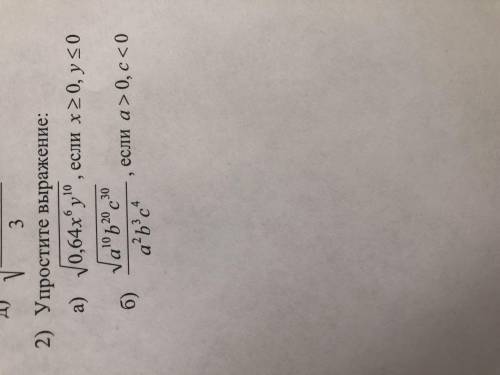 д) √
3
2) Упростите выражение:
а) √0,64x⁶y¹⁰, если x ≥ 0, y ≤ 0
б) √a¹⁰b²⁰c³⁰ / a²b³c⁴, если a > 0, c < 0